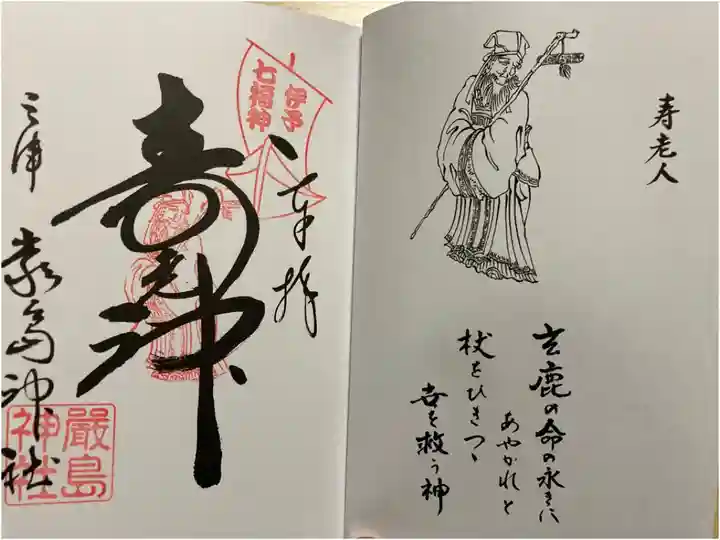 寿老人
玄鹿の命の永きに
あやかれと
杖をひきつゝ
世を救う神
伊予
七福神
奉拝
寿老神
三津
厳島神社
嚴島
神社